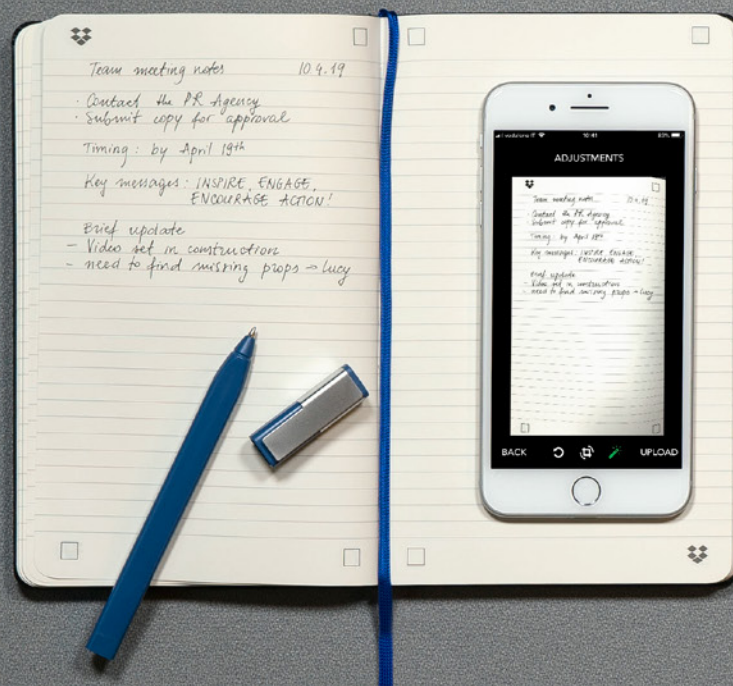 Team meeting notes 10.4.19
· Contact the PR Agency
· Submit copy for approval
Timing: by April 19th
Key messages: INSPIRE, ENGAGE,
ENCOURAGE ACTION!
Brief update
– Video set in construction
– need to find missing props → Lucy
vodafone IT 10:41 93%
ADJUSTMENTS
Team meeting notes 10.4.19
· Contact the PR Agency
· Submit copy for approval
Timing: by April 19th
Key messages: INSPIRE, ENGAGE,
ENCOURAGE ACTION!
Brief update
– Video set in construction
– need to find missing props → Lucy
BACK UPLOAD